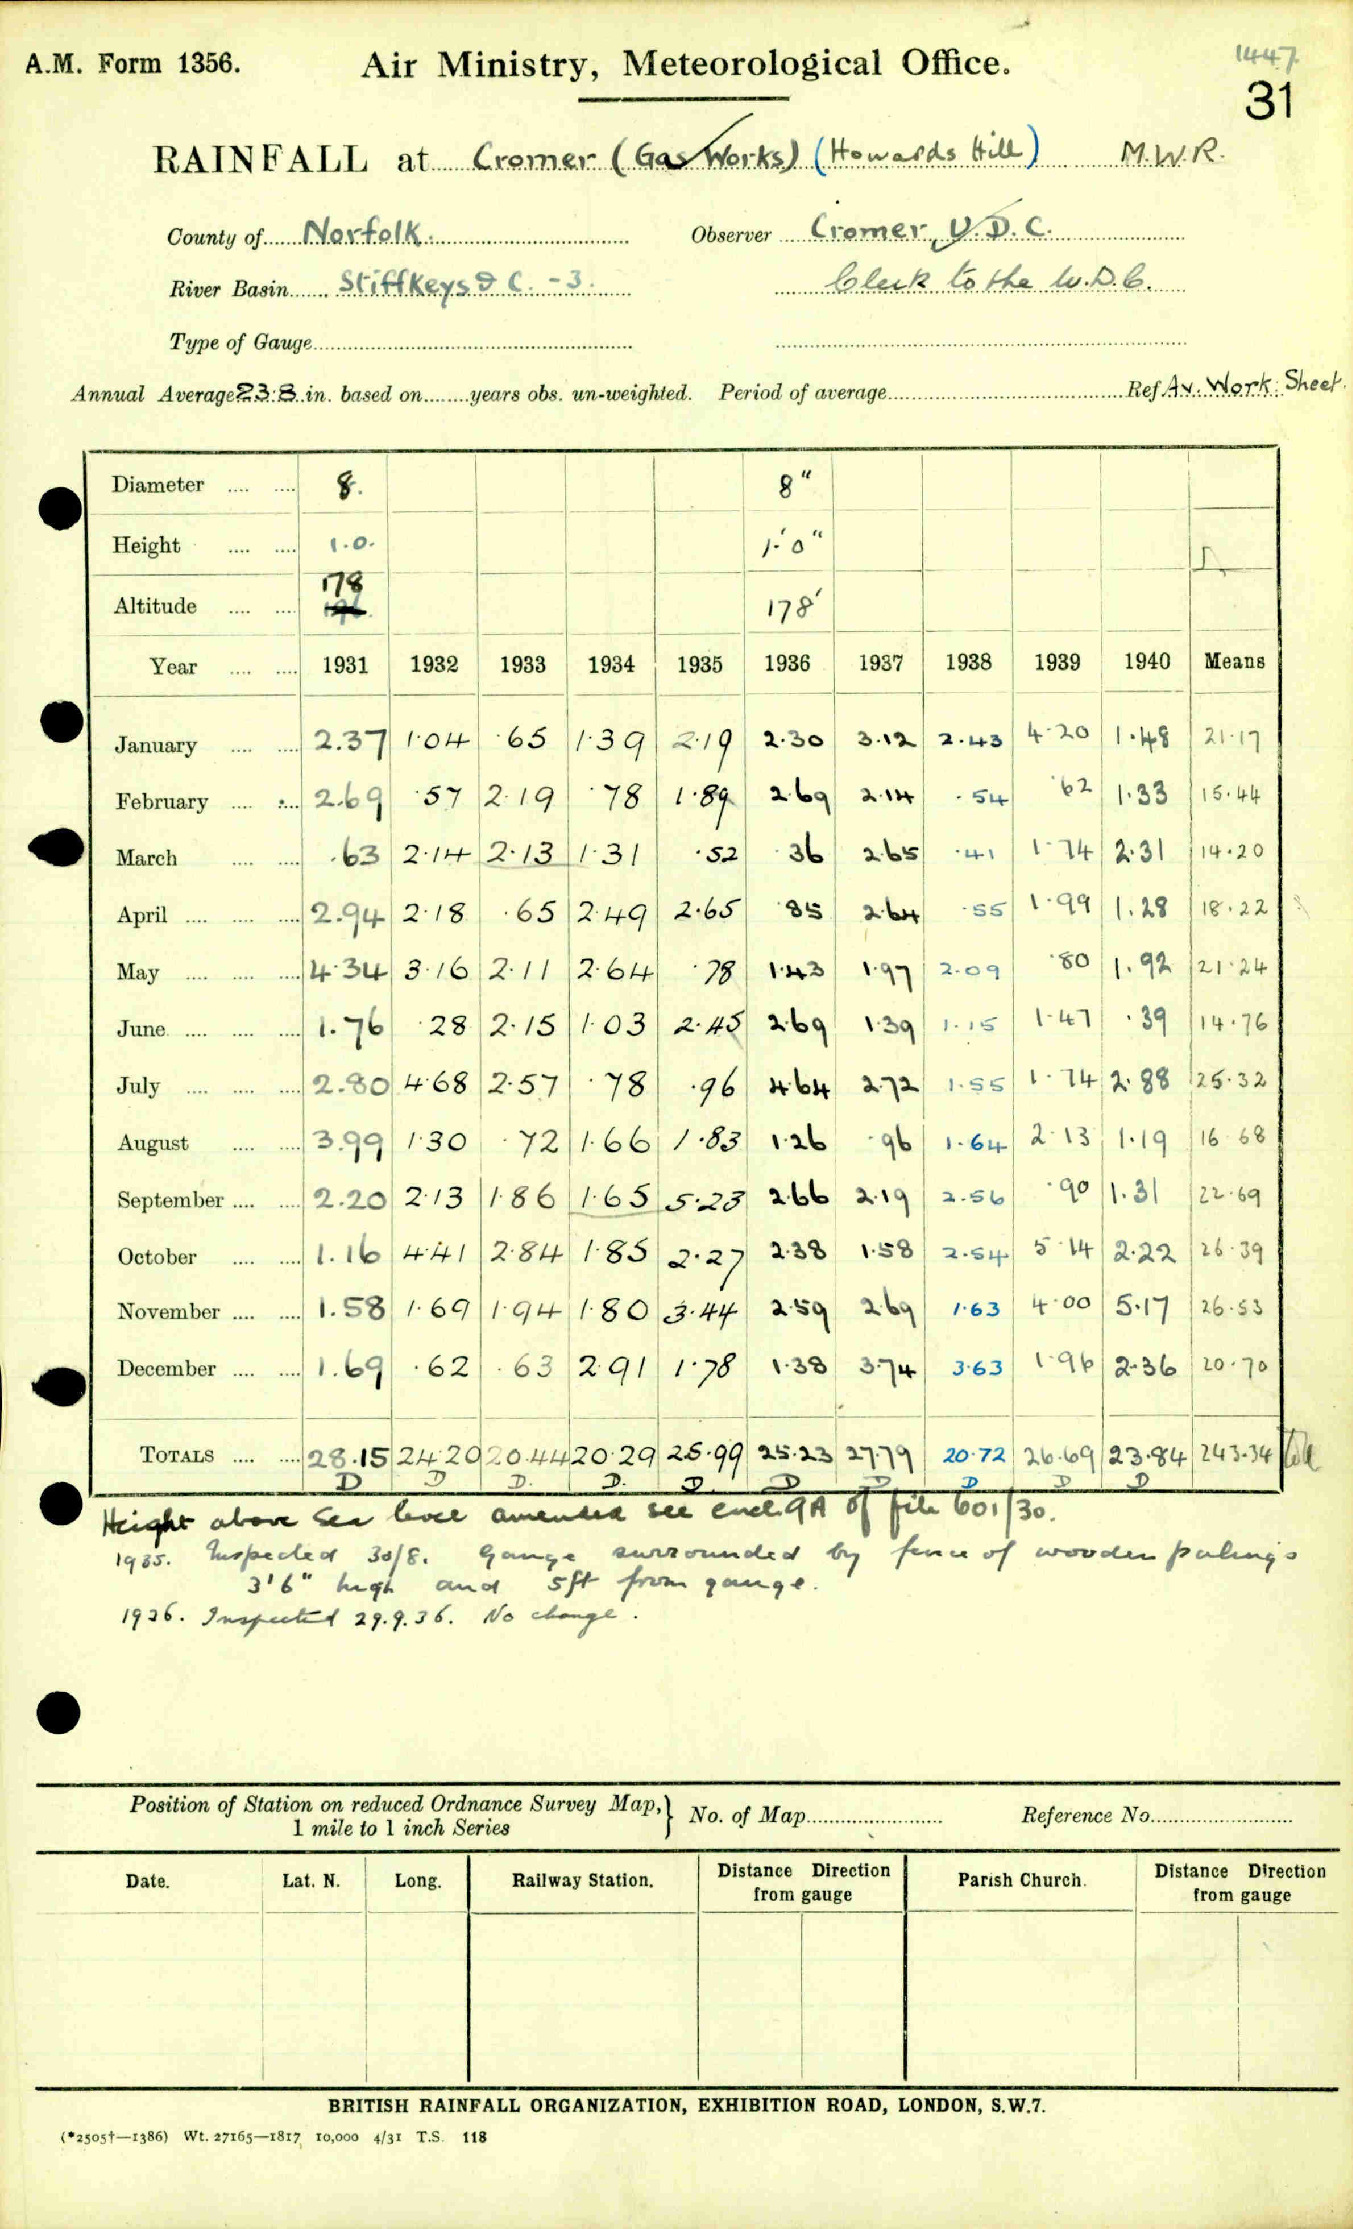 1447
A.M. Form 1356. Air Ministry, Meteorological Office.
31
RAINFALL at Cromer (Gas Works) (Howards Hill) M.W.R.
County of Norfolk. Observer Cromer, U.D.C.
River Basin Stiffkeys & C. -3. Clerk to the U.D.C.
Type of Gauge
Annual Average 23.8 in. based on years obs. un-weighted. Period of average Ref Av. Work: Sheet.
Diameter 8. 8"
Height 1.0. 1'.0"
178
Altitude 178'
Year 1931 1932 1933 1934 1935 1936 1937 1938 1939 1940 Means
January 2.37 1.04 .65 1.39 2.19 2.30 3.12 2.43 4.20 1.48 21.17
February 2.69 .57 2.19 .78 1.89 2.69 2.14 .54 .62 1.33 15.44
March .63 2.14 2.13 1.31 .52 .36 2.65 .41 1.74 2.31 14.20
April 2.94 2.18 .65 2.49 2.65 .85 2.64 .55 1.99 1.28 18.22
May 4.34 3.16 2.11 2.64 .78 1.43 1.97 2.09 .80 1.92 21.24
June 1.76 .28 2.15 1.03 2.45 2.69 1.39 1.15 1.47 .39 14.76
July 2.80 4.68 2.57 .78 .96 4.64 2.72 1.55 1.74 2.88 25.32
August 3.99 1.30 .72 1.66 1.83 1.26 .96 1.64 2.13 1.19 16.68
September 2.20 2.13 1.86 1.65 5.23 2.66 2.19 2.56 .90 1.31 22.69
October 1.16 4.41 2.84 1.85 2.27 2.38 1.58 2.54 5.14 2.22 26.39
November 1.58 1.69 1.94 1.80 3.44 2.59 2.69 1.63 4.00 5.17 26.53
December 1.69 .62 .63 2.91 1.78 1.38 3.74 3.63 1.96 2.36 20.70
TOTALS 28.15 24.20 20.44 20.29 25.99 25.23 27.79 20.72 26.69 23.84 243.34
D D D. D. D. D D D D D
Height above sea level amended see encl. 9A of file 601/30.
1935. Inspected 30/8. Gauge surrounded by fence of wooden palings
3'6" high and 5ft from gauge.
1936. Inspected 29.9.36. No change.
Position of Station on reduced Ordnance Survey Map, No. of Map Reference No.
1 mile to 1 inch Series
Date. Lat. N. Long. Railway Station. Distance Direction from gauge Parish Church. Distance Direction from gauge
BRITISH RAINFALL ORGANIZATION, EXHIBITION ROAD, LONDON, S.W.7.
(*2505†—1386) Wt. 27165—1817 10,000 4/31 T.S. 118